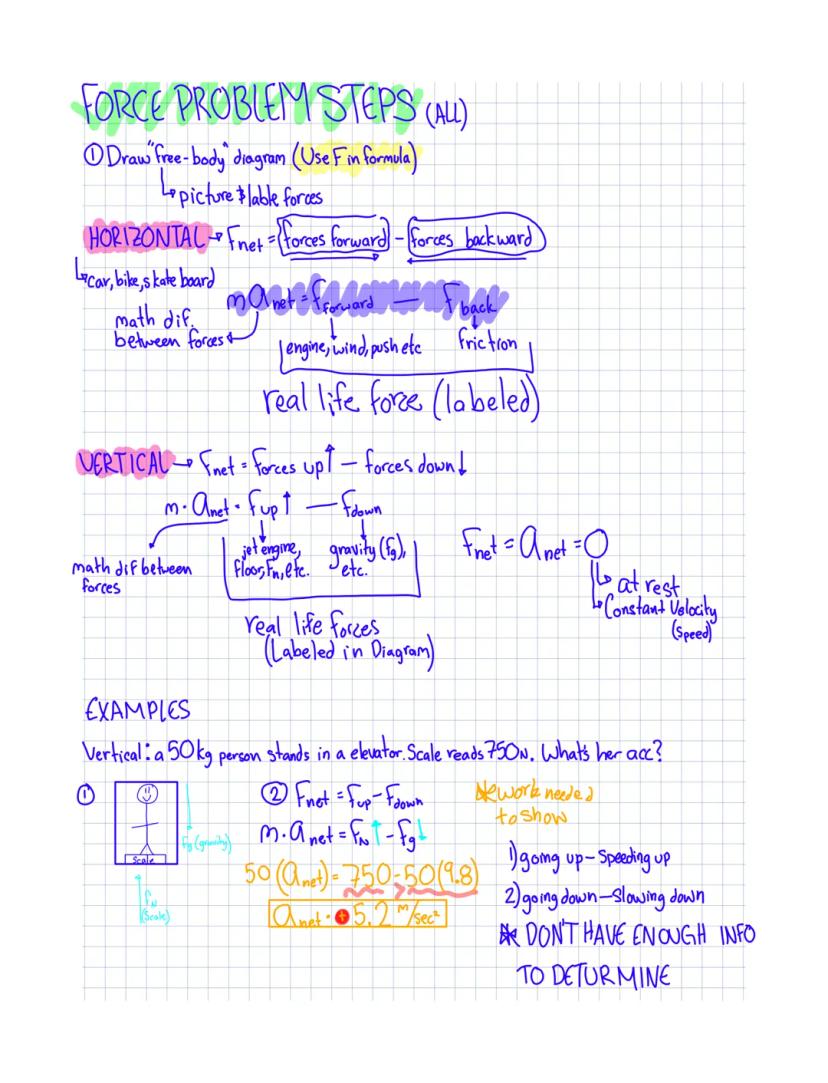 FORCE PROBLEM STEPS (ALL)
① Draw "free-body" diagram (Use F in formula)
↳ picture & lable forces
HORIZONTAL → Fnet = (forces forward) - (forces backward)
↳ Car, bike, skate board
manet = Fforward — Fback
math dif. between forces
engine, wind, push etc
friction
real life force (labeled)
VERTICAL → Fnet = Forces up↑ — forces down↓
m · anet = Fup↑ — Fdown
math dif between
forces
jet engine,
floor, Fn, etc.
gravity (fg),
etc.
real life forces
(Labeled in Diagram)
Fnet = anet = 0
↳ at rest
↳ Constant Velocity
(speed)
EXAMPLES
Vertical: a 50kg person stands in a elevator. Scale reads 750N. What's her acc?
①
Scale
Fg (gravity)
FN
(Scale)
② Fnet = Fup - Fdown
m · anet = FN↑ - Fg↓
50 (anet) = 750 - 50(9.8)
anet = + 5.2 m/sec²
* work needed
to show
1) going up - Speeding up
2) going down — Slowing down
* DON'T HAVE ENOUGH INFO
TO DETURMINE